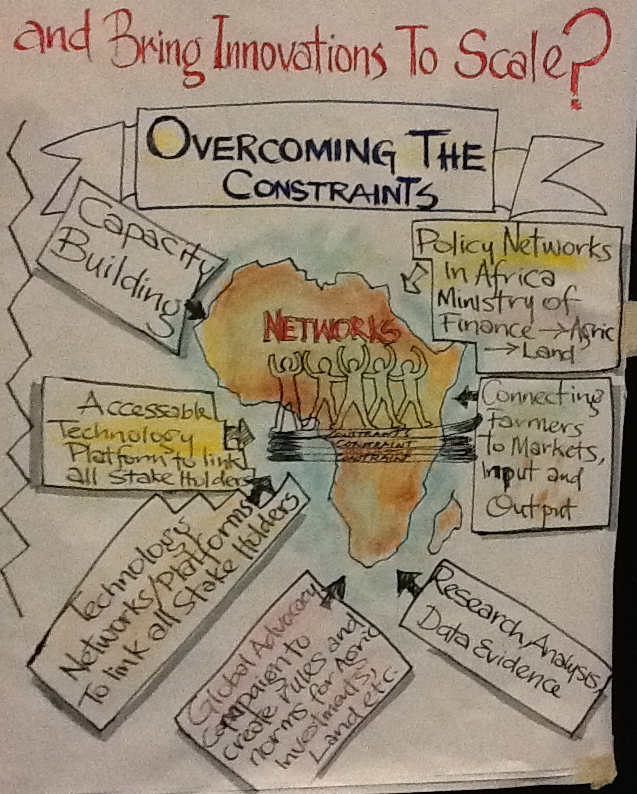 and Bring Innovations To Scale?
OVERCOMING THE
CONSTRAINTS
Capacity
Building
Policy Networks
In Africa
Ministry of
Finance → Agric
→ Land
NETWORKS
Accessabl
Technology
Platform to link
all Stake Holders
Connecting
Farmers
to Markets,
Input and
Output
CONSTRAINT
CONSTRAINT
Technology
Networks/Platforms
To link all Stake Holders
Global Advocacy
Campaign to
create rules and
norms for Agric
Investments,
Land etc.
Research, Analysis,
Data Evidence